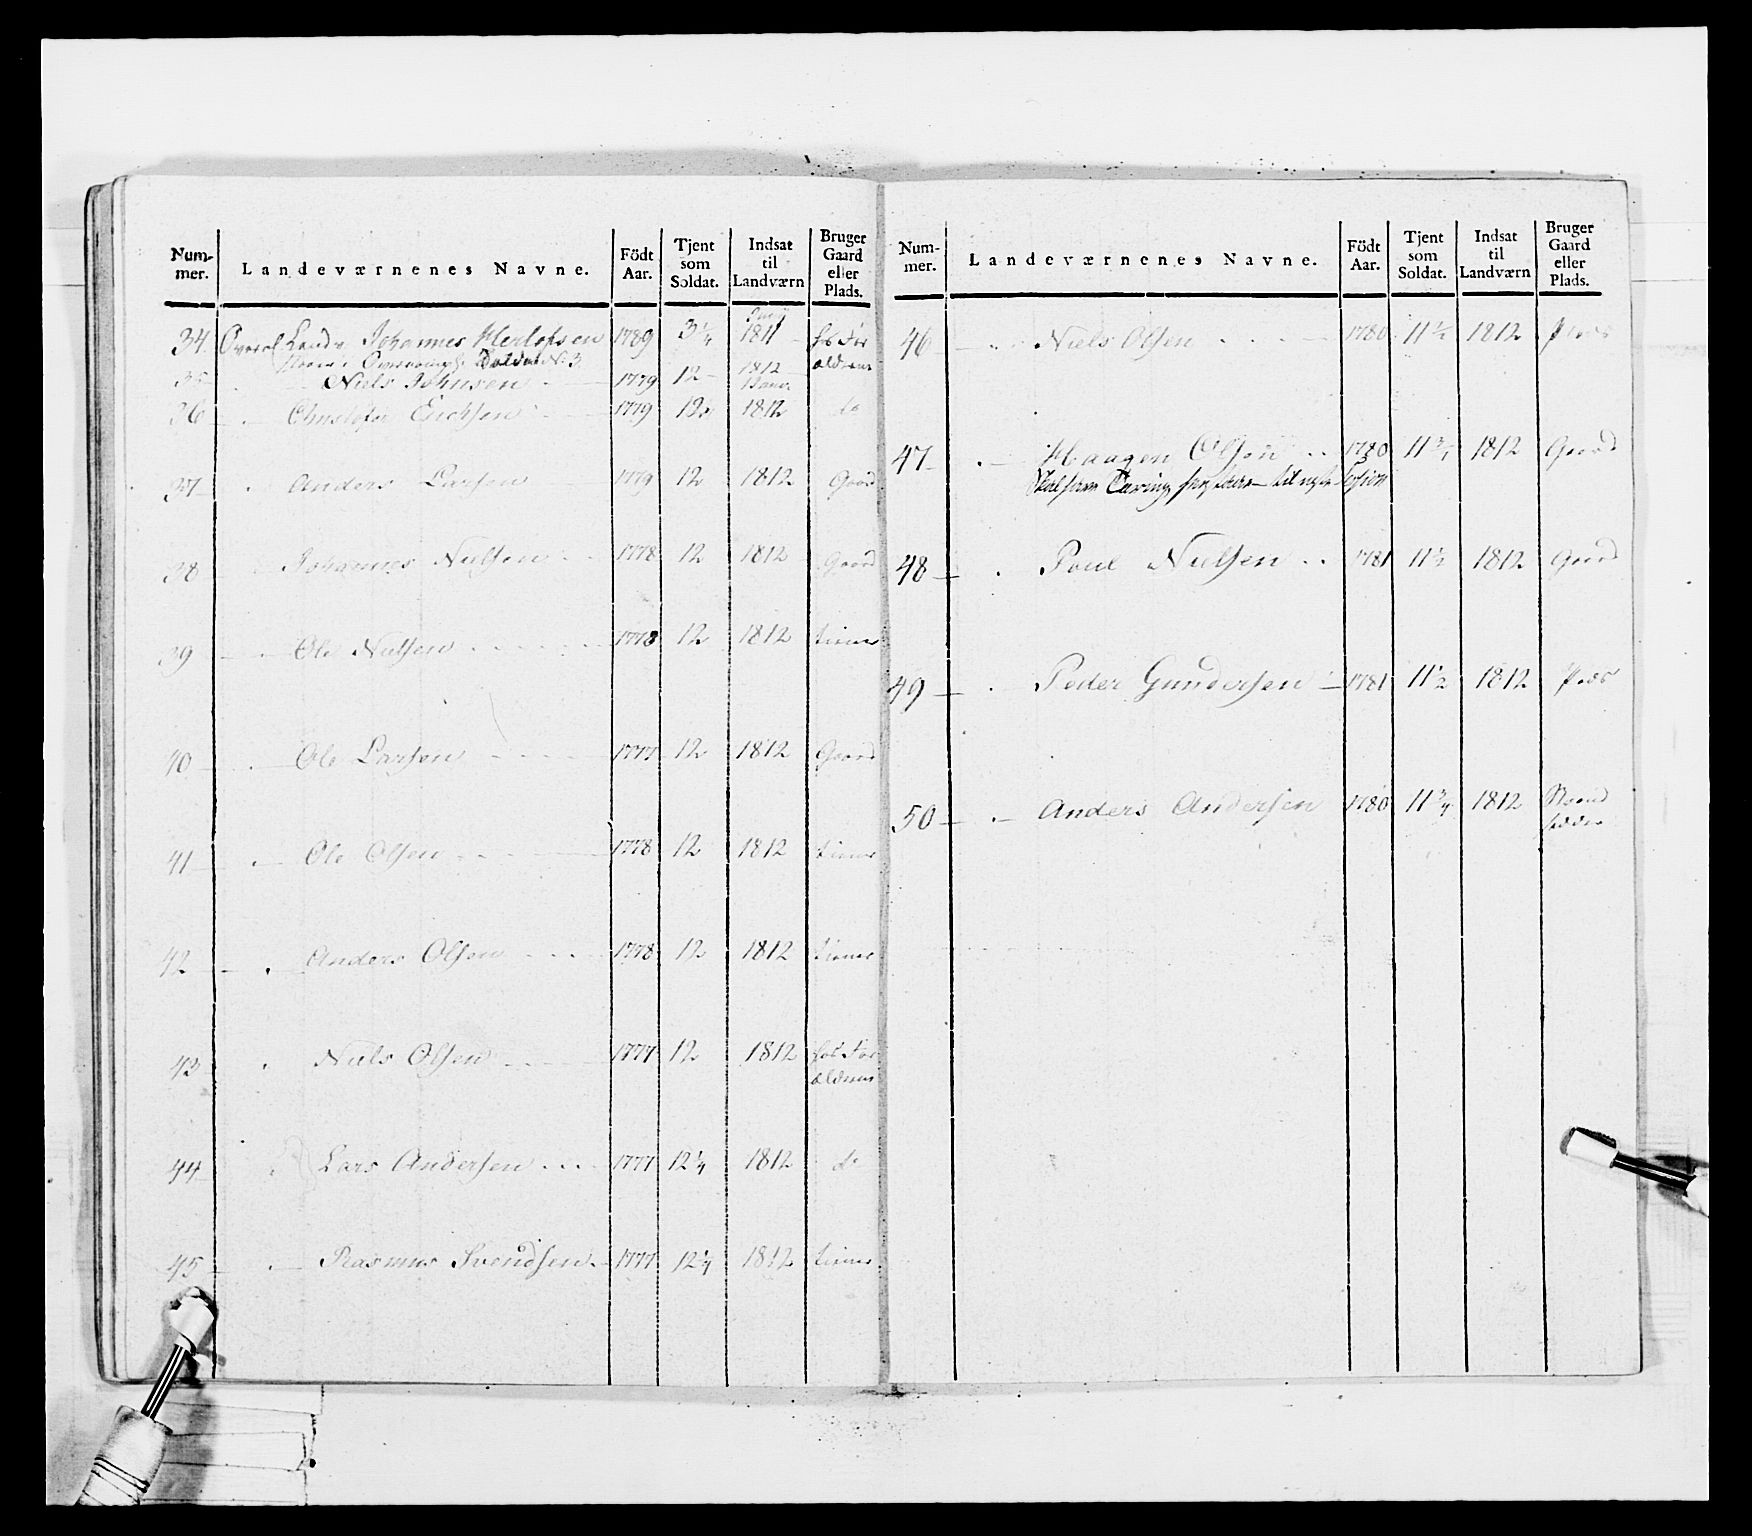 Num-
mer.
Landeværnenes Navne.
Födt
Aar.
Tjent
som
Soldat.
Indsat
til
Landværn
Bruger
Gaard
eller
Plads.
34 Overcl Landv Johannes Herlofsen 1789 3¼ 1811 hos For
ældrene
35 Niels Johnsen 1779 12 1812
36 Christofer Erichsen 1779 12 1812 do
37 Anders Larsen 1779 12 1812 Gaard
38 Johannes Nielsen 1778 12 1812 Gaard
39 Ole Nielsen 1778 12 1812 tiener
40 Ole Larsen 1777 12 1812 Gaard
41 Ole Olsen 1778 12 1812 tiener
42 Anders Olsen 1778 12 1812 tiener
43 Niels Olsen 1777 12 1812 hos For
ældrene
44 Lars Andersen 1777 12¼ 1812 do
45 Rasmus Svendsen 1777 12¼ 1812 tiener
Num-
mer.
Landeværnenes Navne.
Födt
Aar.
Tjent
som
Soldat.
Indsat
til
Landværn
Bruger
Gaard
eller
Plads.
46 Niels Olsen 1780 11½ 1812 Plads
47 Haagen Olsen 1780 11¾ 1812 Gaard
48 Poul Nielsen 1781 11½ 1812 Gaard
49 Peder Gundersen 1781 11½ 1812 Plads
50 Anders Andersen 1780 11¾ 1812 Strand
sidder